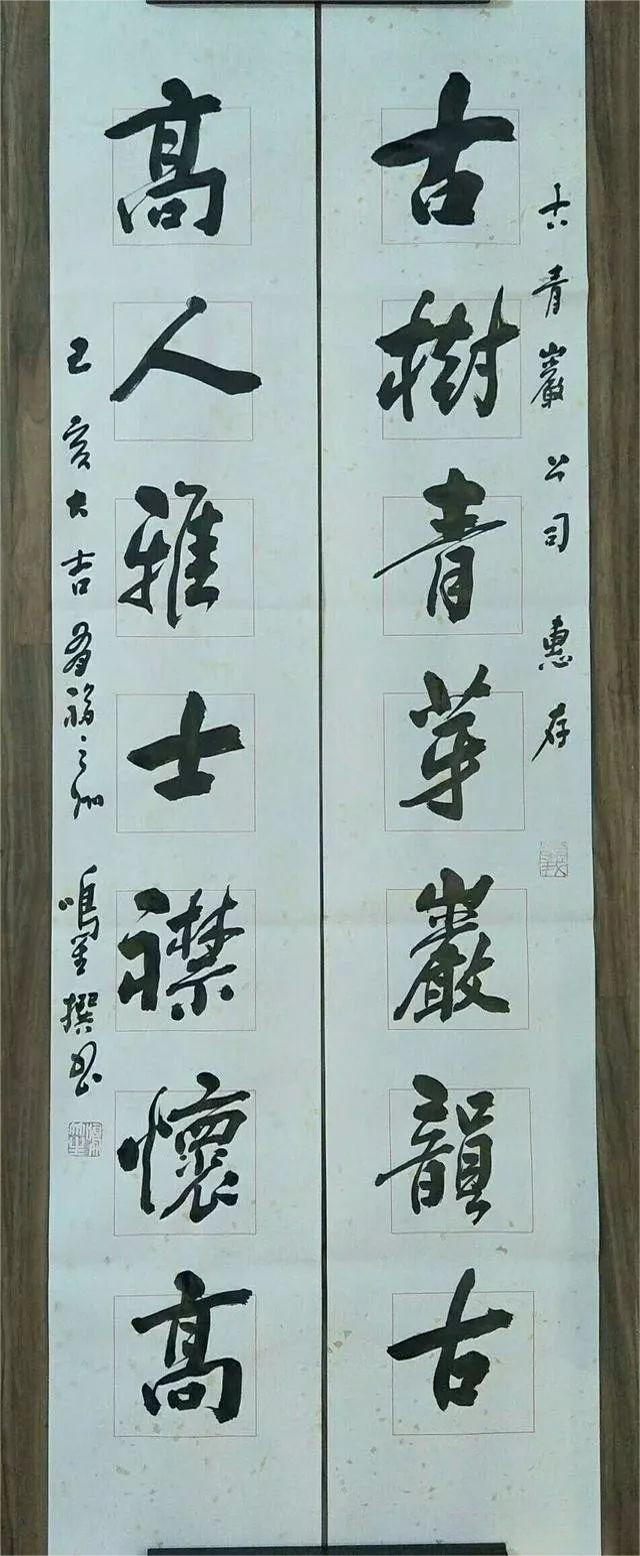 古青巖公司 惠存
古樹青芽巖韻古
高人雅士襟懷高
己亥大吉 福之州 鳴 撰書